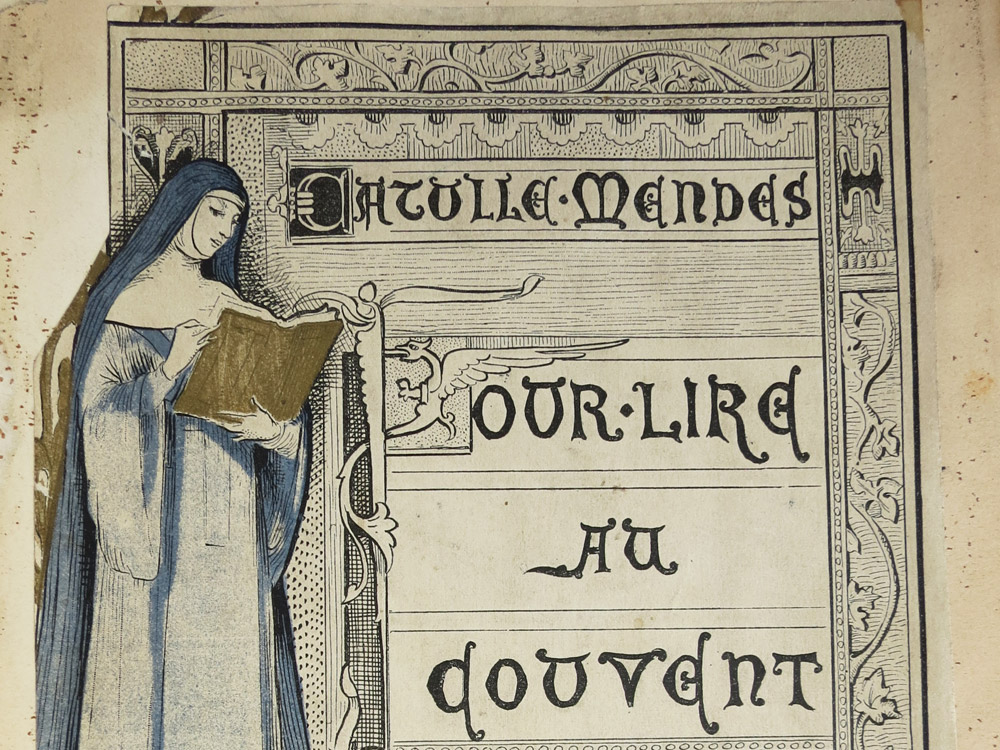 CATULLE·MENDES
POUR·LIRE
AU
COUVENT